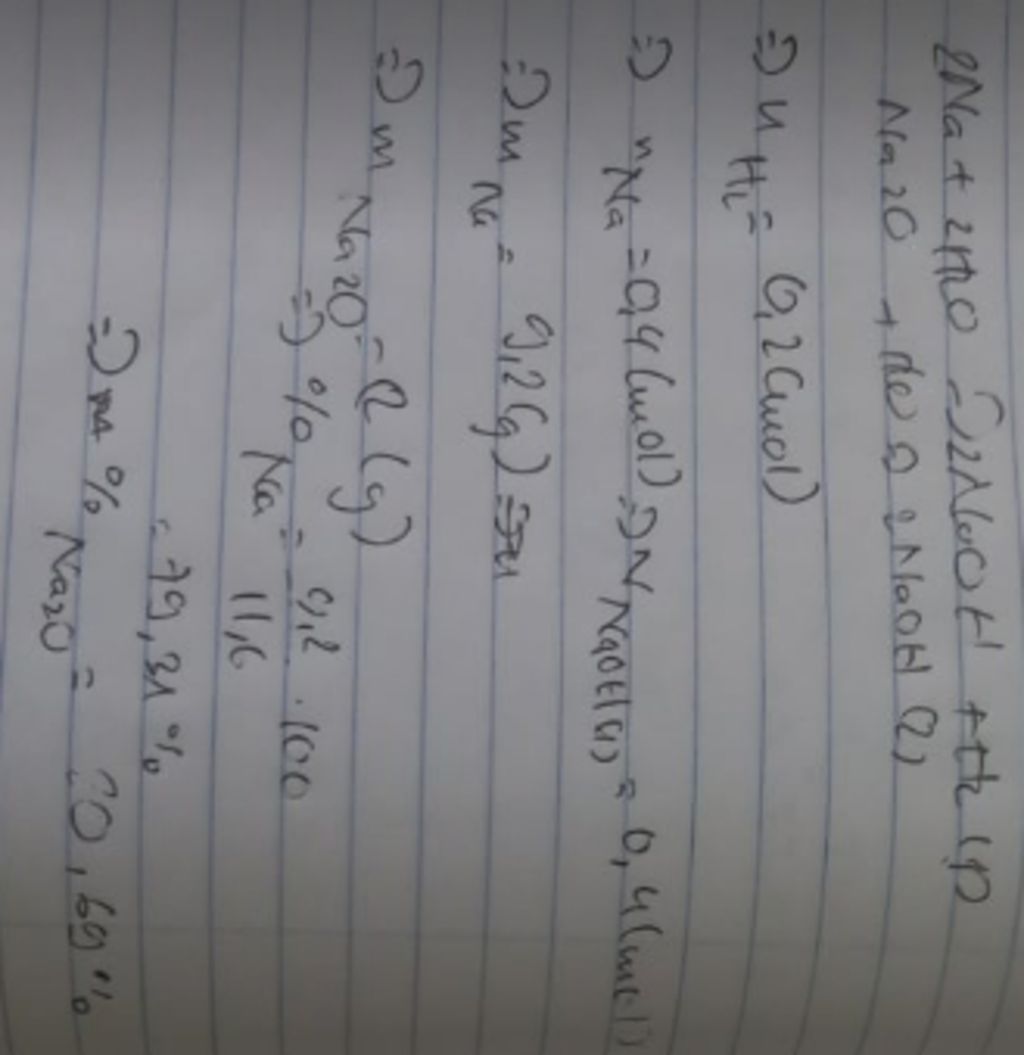 2Na + 2H2O => 2NaOH + H2 (1)
Na2O + H2O => 2NaOH (2)
=> nH2 = 0,2 (mol)
=> nNa = 0,4 (mol) => nNaOH(1) = 0,4 (mol)
=> mNa = 9,2 (g)
=> mNa2O = 2 (g)
=> %Na = 9,2 . 100
11,6
= 79,31%
=> %Na2O = 20,69%